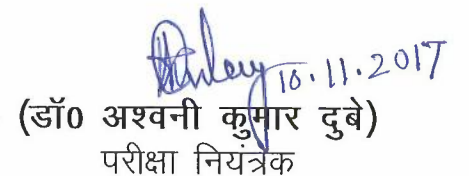 10.11.2017
(डॉ0 अश्वनी कुमार दुबे)
परीक्षा नियंत्रक